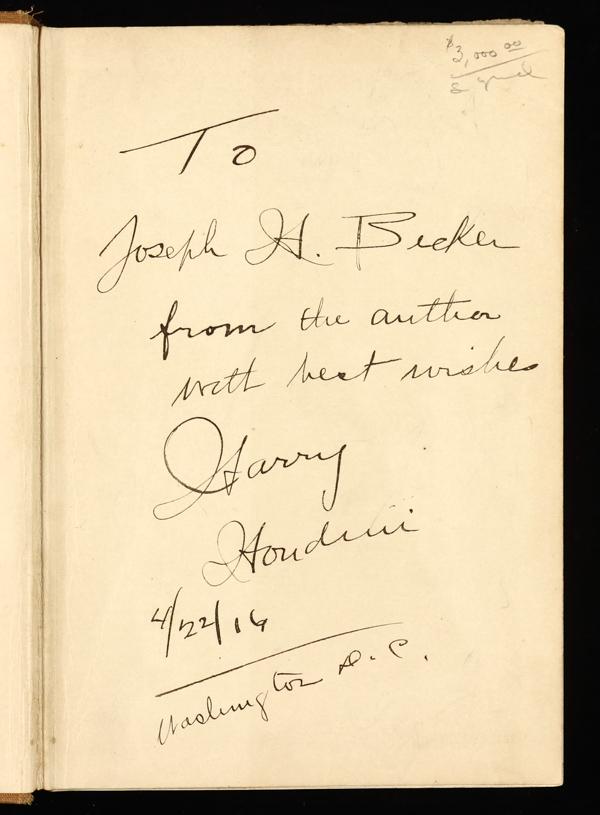 $3,000.00
Signed
To
Joseph H. Becker
from the author
with best wishes
Harry
Houdini
4/22/16
Washington D.C.